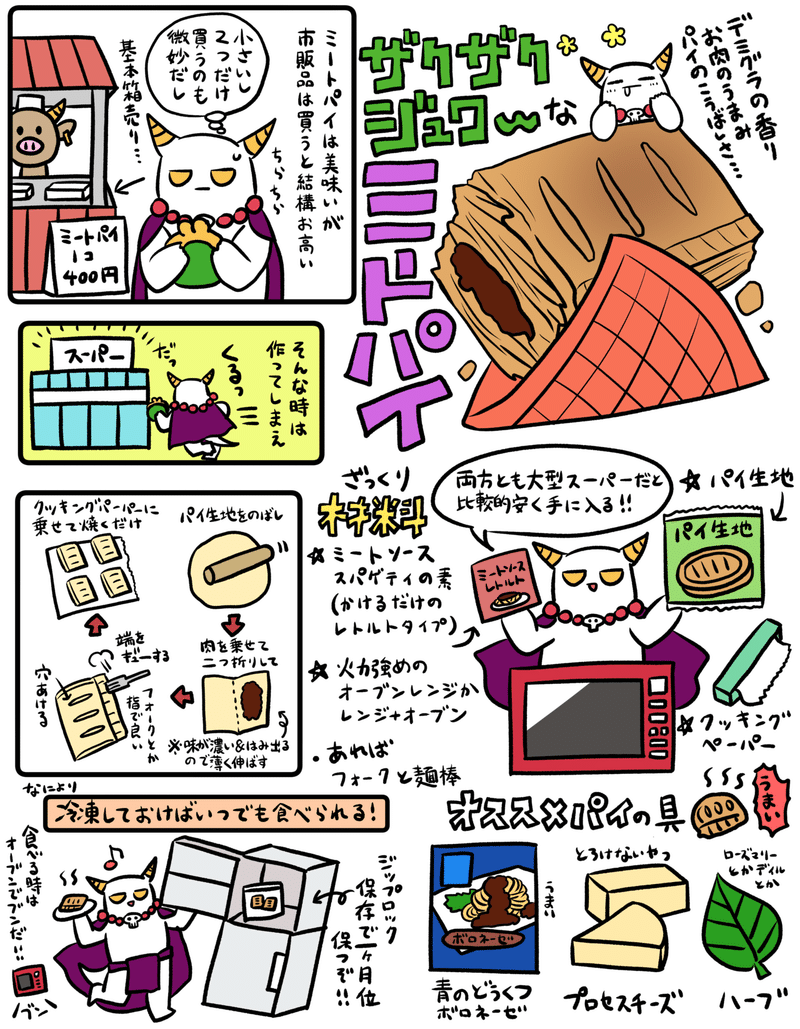 ミートパイは美味いが
市販品は買うと結構お高い
小さいし
2つだけ
買うのも
微妙だし
基本箱売り…
ちらちら
ミートパイ
1コ
400円
ザクザク
ジュワ〜な
ミートパイ
デミグラの香り
お肉のうまみ
パイのこうばしさ…
そんな時は
作ってしまえ
くるっ
だっ
スーパー
ざっくり
材料
両方とも大型スーパーだと
比較的安く手に入る!!
☆パイ生地
パイ生地
ミートソース
レトルト
☆ミートソース
スパゲティの素
(かけるだけの
レトルトタイプ)
☆火力強めの
オーブンレンジか
レンジ+オーブン
・あれば
フォークと麺棒
☆クッキング
ペーパー
パイ生地をのばし
肉を乗せて
二つ折りして
※味が濃い&はみ出る
ので薄く伸ばす
端を
ギューする
フォークとか
指で良い
穴あける
クッキングペーパーに
乗せて焼くだけ
なにより
冷凍しておけばいつでも食べられる!
食べる時は
オーブンでブンだい!!
ブン
ジップロック
保存で一ヶ月位
保つぞ!!
オススメパイの具
うまい
ボロネーゼ
うまい
青のどうくつ
ボロネーゼ
とろけないやつ
プロセスチーズ
ローズマリー
とかディル
とか
ハーブ